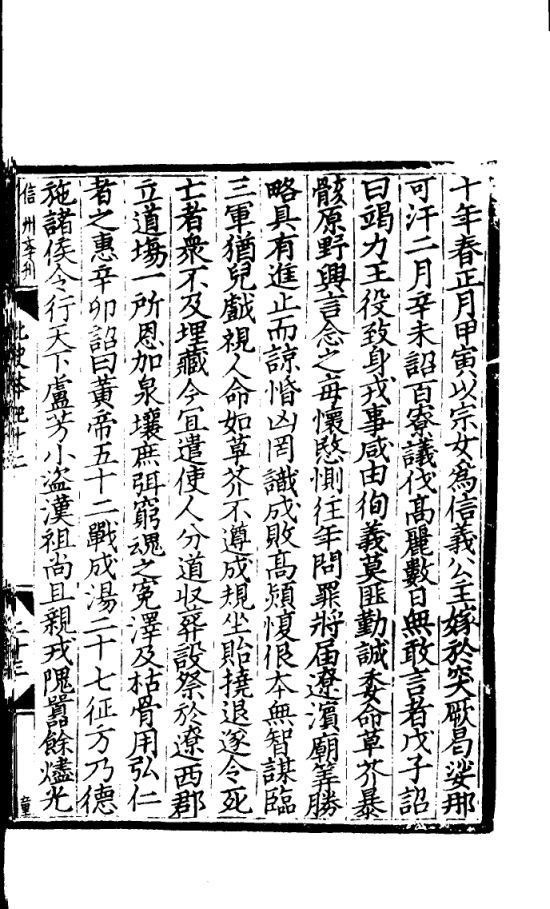 十年春正月甲寅以宗女爲信義公主嫁於突厥曷娑那
可汗二月辛未詔百寮議伐髙麗數日無敢言者戊子詔
曰竭力王役致身戎事咸由徇義莫匪勤誠委命草芥暴
骸原野興言念之每懷愍惻往年問罪將届遼濱廟筭勝
略具有進止而諒惛凶罔識成敗髙熲愎佷本無智謀臨
三軍猶兒戲視人命如草芥不遵成規坐貽撓退遂令死
亡者衆不及埋藏今宜遣使人分道收葬設祭於遼西郡
立道塲一所恩加泉壤庶弭窮魂之寃澤及枯骨用弘仁
者之惠辛卯詔曰黃帝五十二戰成湯二十七征方乃德
施諸侯令行天下盧芳小盗漢祖尚且親戎隗嚻餘燼光
信州
北史本紀十二
二十三
童